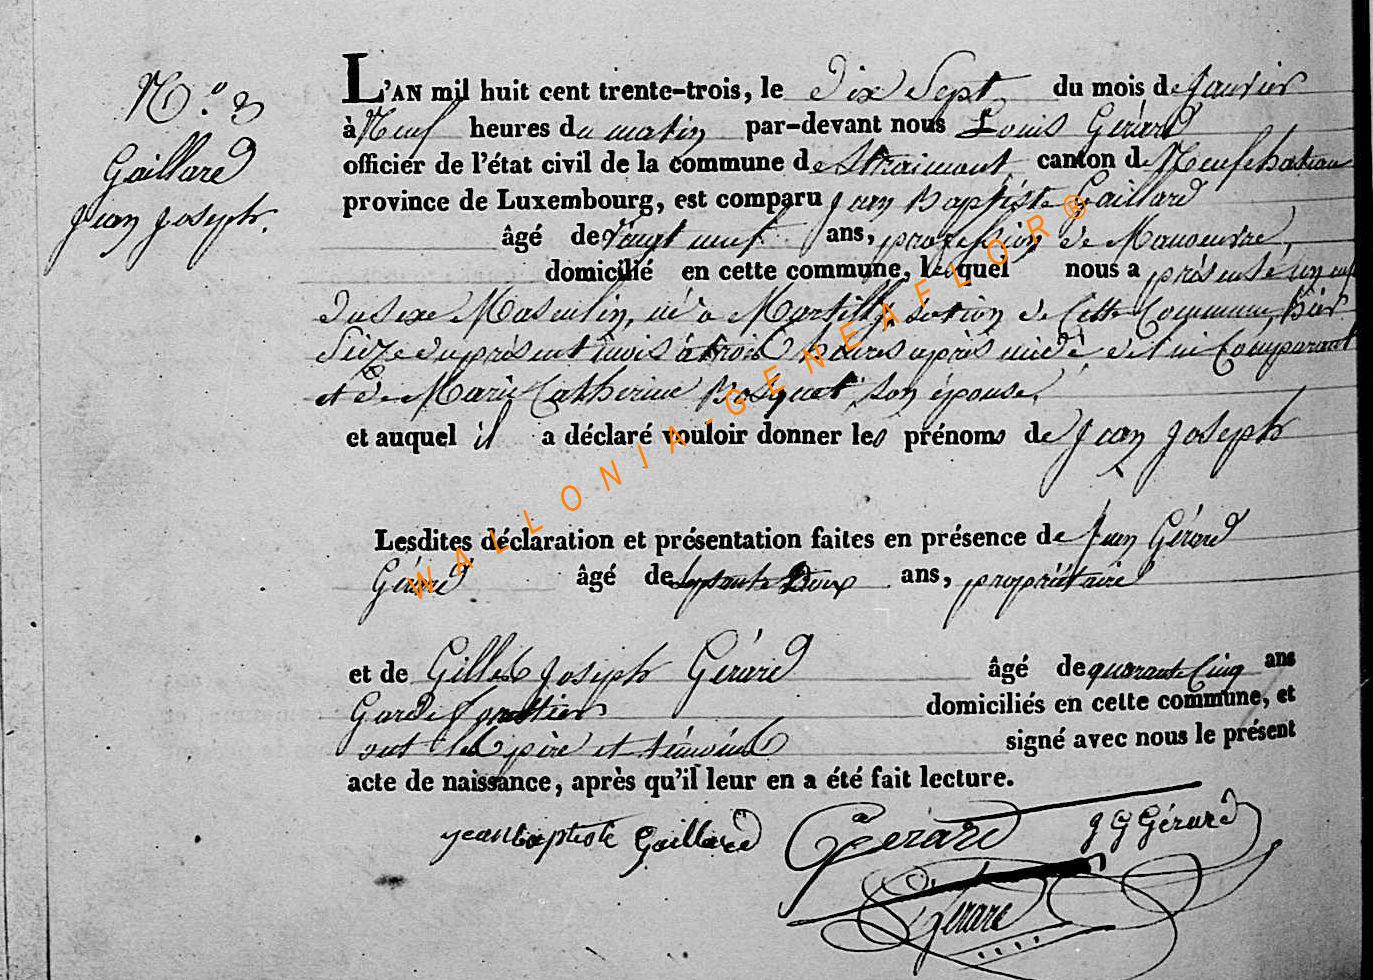 N.º 3
Gaillard
Jean Joseph.
L'AN mil huit cent trente-trois, le dix Sept du mois de Janvier
à Neuf heures du matin par-devant nous Louis Gérard
officier de l'état civil de la commune de Straimont canton de Neufchateau
province de Luxembourg, est comparu Jean Baptiste Gaillard
âgé de Vingt neuf ans, profession de Manoeuvre,
domicilié en cette commune, lequel nous a présenté un enf
du sexe Masculin, né à Martilly, section de Cette Commune, hier
Seize du présent mois à trois heures après midi de lui Comparant
et de Marie Catherine Bosquet, son épouse,
et auquel il a déclaré vouloir donner les prénoms de Jean Joseph
Lesdites déclaration et présentation faites en présence de Jean Gérard
Gérard âgé de Septante Deux ans, propriétaire
et de Gilles Joseph Gérard âgé de quarante Cinq ans
Garde forestier domiciliés en cette commune, et
ont les père et témoins signé avec nous le présent
acte de naissance, après qu'il leur en a été fait lecture.
jean baptiste Gaillard Gerard J G Gérard
Gerard
WALLONIA-GENEAFLOR®